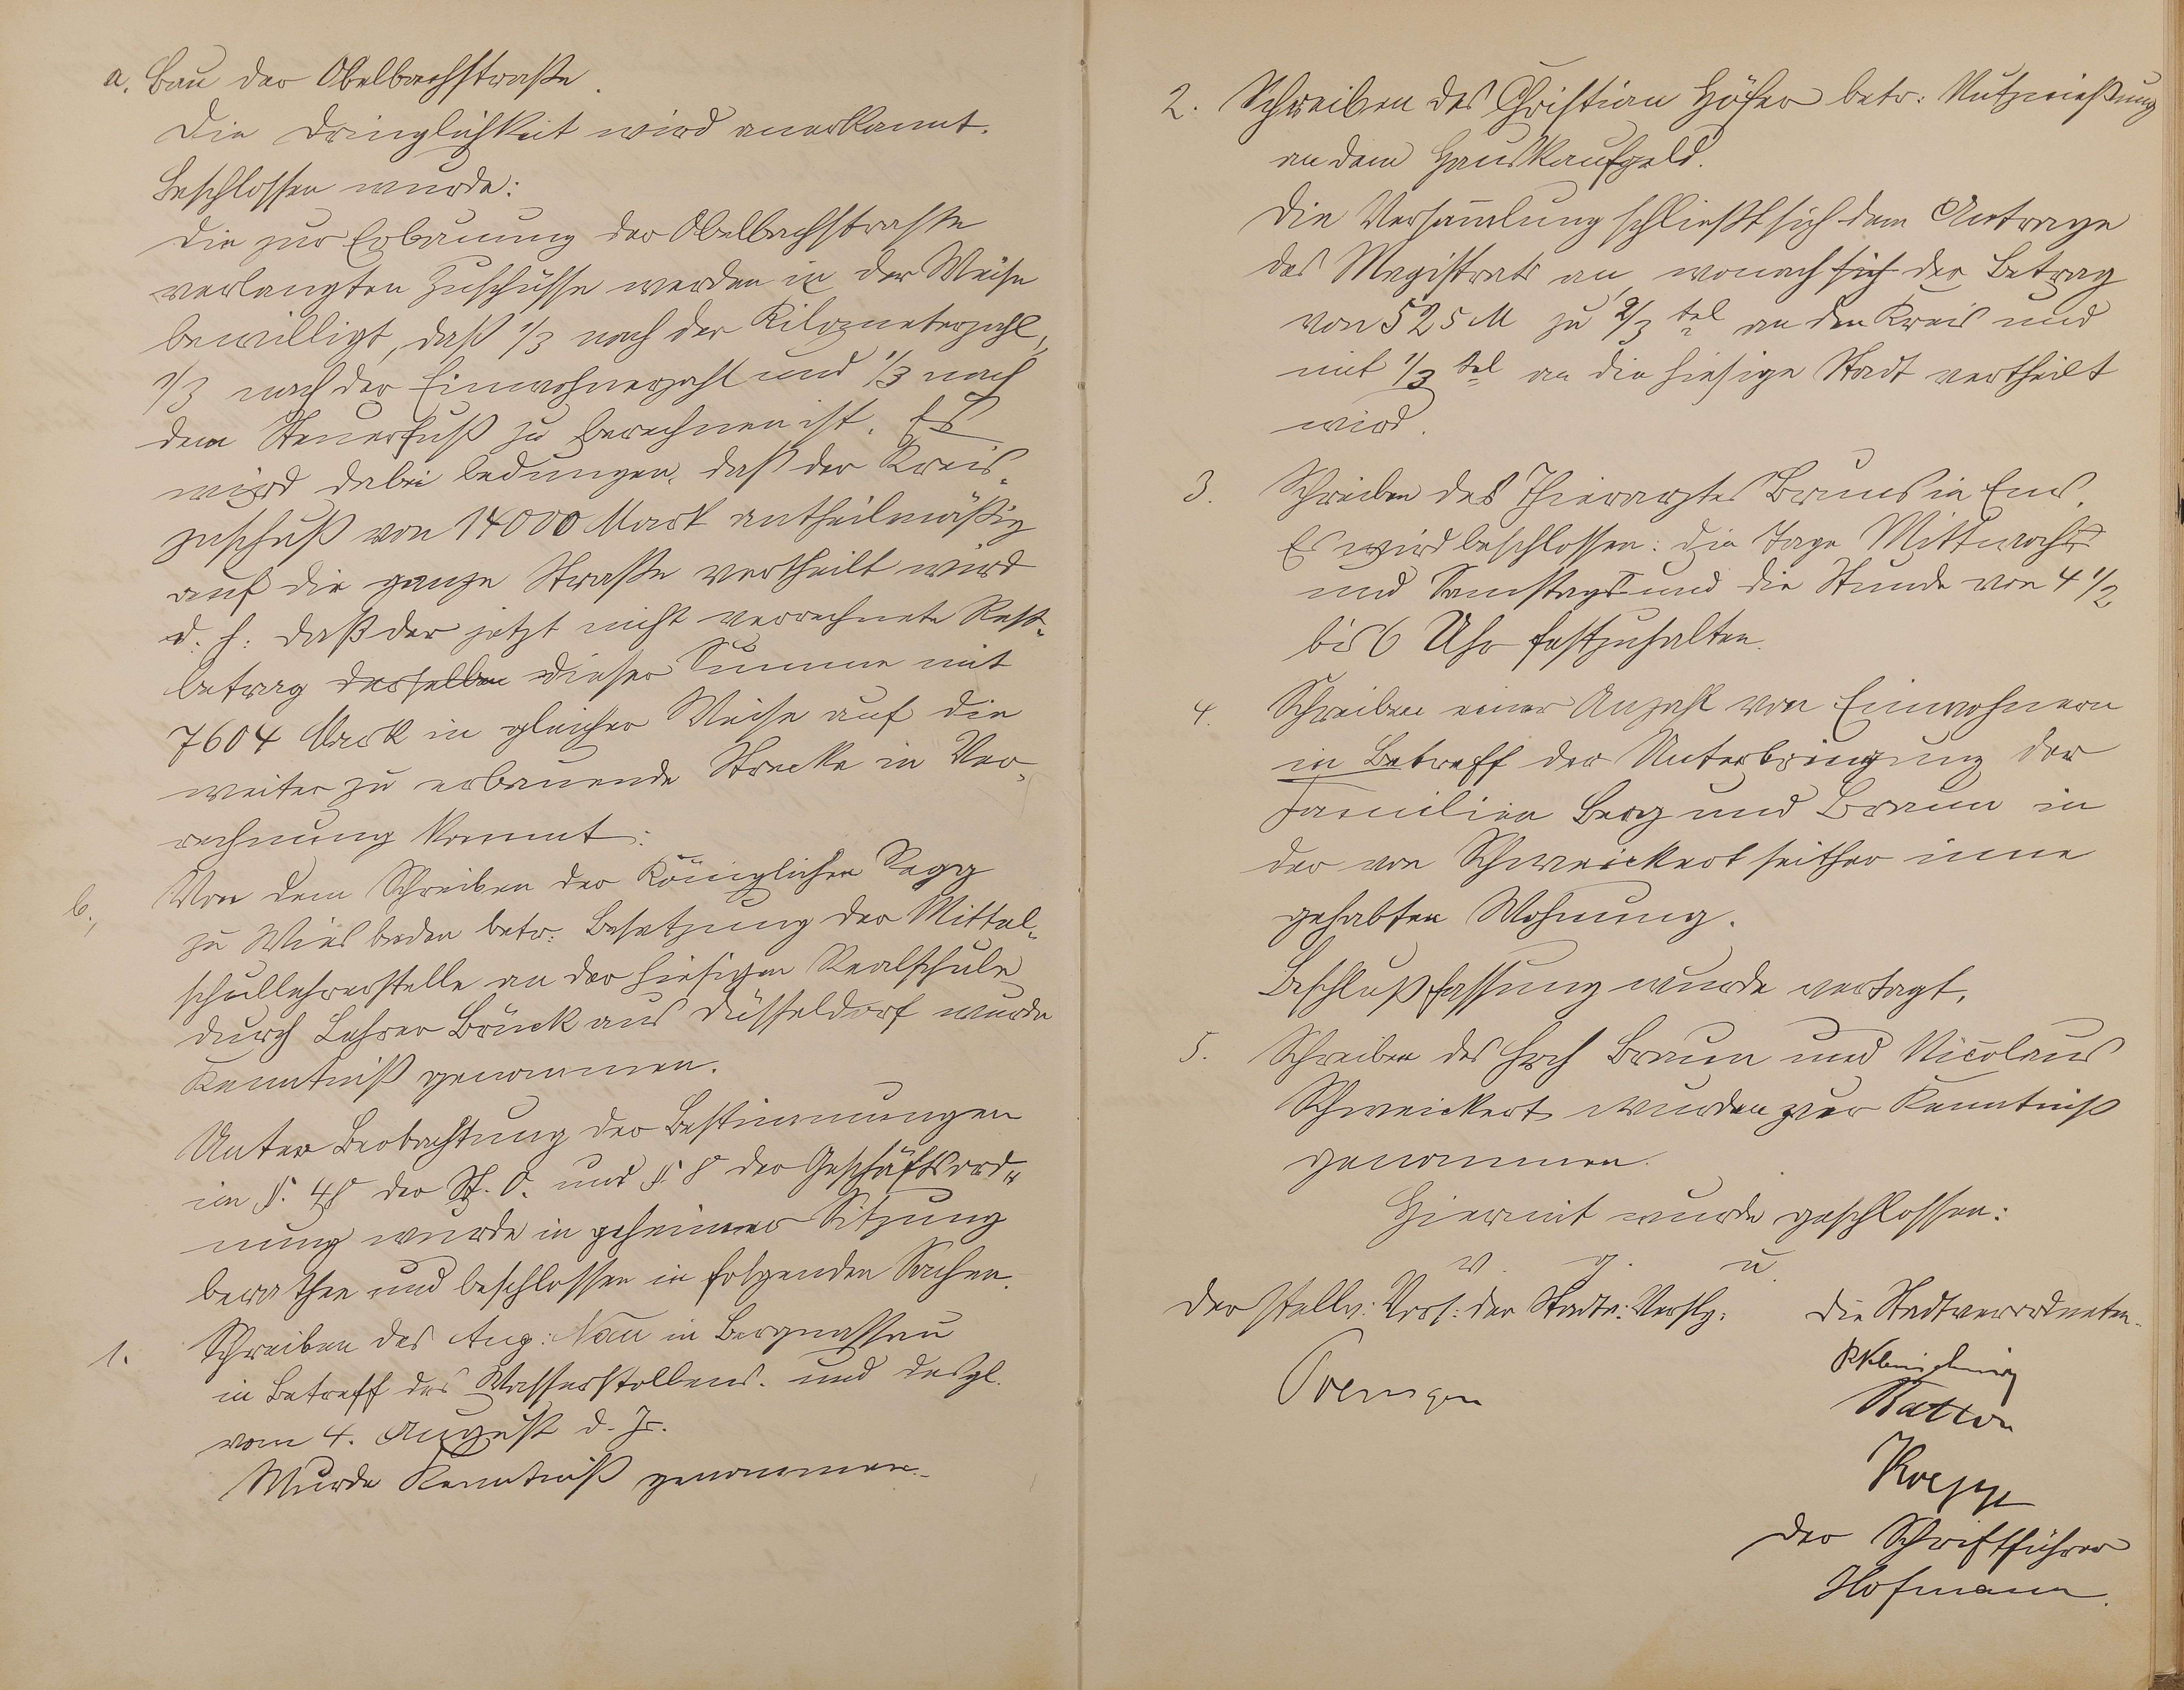 a. Bau der Obelbachstraße.
Die Dringlichkeit wird anerkannt.
Beschlossen wurde:
Die zur Erbauung der Obelbachstrasse
verlangten Zuschüsse werden in der Weise
bewilligt, daß 1/3 nach der Kilometerzahl,
1/3 nach der Einwohnerzahl und 1/3 nach
dem Steuerfuß zu berechnen ist. Es
wird dabei bedungen, daß der Kreis-
zuschuß von 14000 Mark antheilmäßig
auf die ganze Straße vertheilt wird
d. h: daß der jetzt nicht verrechnete Rest-
betrag desselben dieser Summe mit
7604 Mark in gleicher Weise auf die
weiter zu erbauende Strecke in Ver-
rechnung kommt:
b., Von dem Schreiben der Königlichen Regg
zu Wiesbaden betr: Besetzung der Mittel-
schullehrerstelle an der hiesigen Realschule
durch Lehrer Brück aus Düsseldorf wurde
Kenntniß genommen.
Unter Beobachtung der Bestimmungen
im §. 48 der St. O. und § 8 der Geschäftsord-
nung wurde in geheimer Sitzung
berathen und beschlossen in folgenden Sachen.
1. Schreiben des Aug: Nau in Bergnassau
in Betreff des Wasserstollens. und desgl.
vom 4. August d. Js.
Wurde Kenntniß genommen.
2. Schreiben des Christian Höfer betr: Nutznießung
an dem Hauskaufgeld.
Die Versammlung schließt sich dem Antrage
des Magistrats an, wonach sich der Betrag
von 525 M zu 2/3 tel an den Kreis und
mit 1/3 tel an die hiesige Stadt vertheilt
wird.
3. Schreiben des Thierarztes Bruns in Ems.
Es wird beschlossen: die Tage Mittwochs
und Samstags und die Stunde von 4 1/2
bis 6 Uhr festzuhalten.
4. Schreiben einer Anzahl von Einwohnern
in Betreff der Unterbringung der
Familien Berg und Braun in
der von Schweickert seither inne
gehabten Wohnung.
Beschlußfassung wurde vertagt.
5. Schreiben des Hrch Braun und Nicolaus
Schweickert wurden zur Kenntniß
genommen.
Hiermit wurde geschlossen:
v. g. u.
Der stellv: Vors: der Stadtv: Verslg: Die Stadtverordneten.
Der Schriftführer
Hofmann.